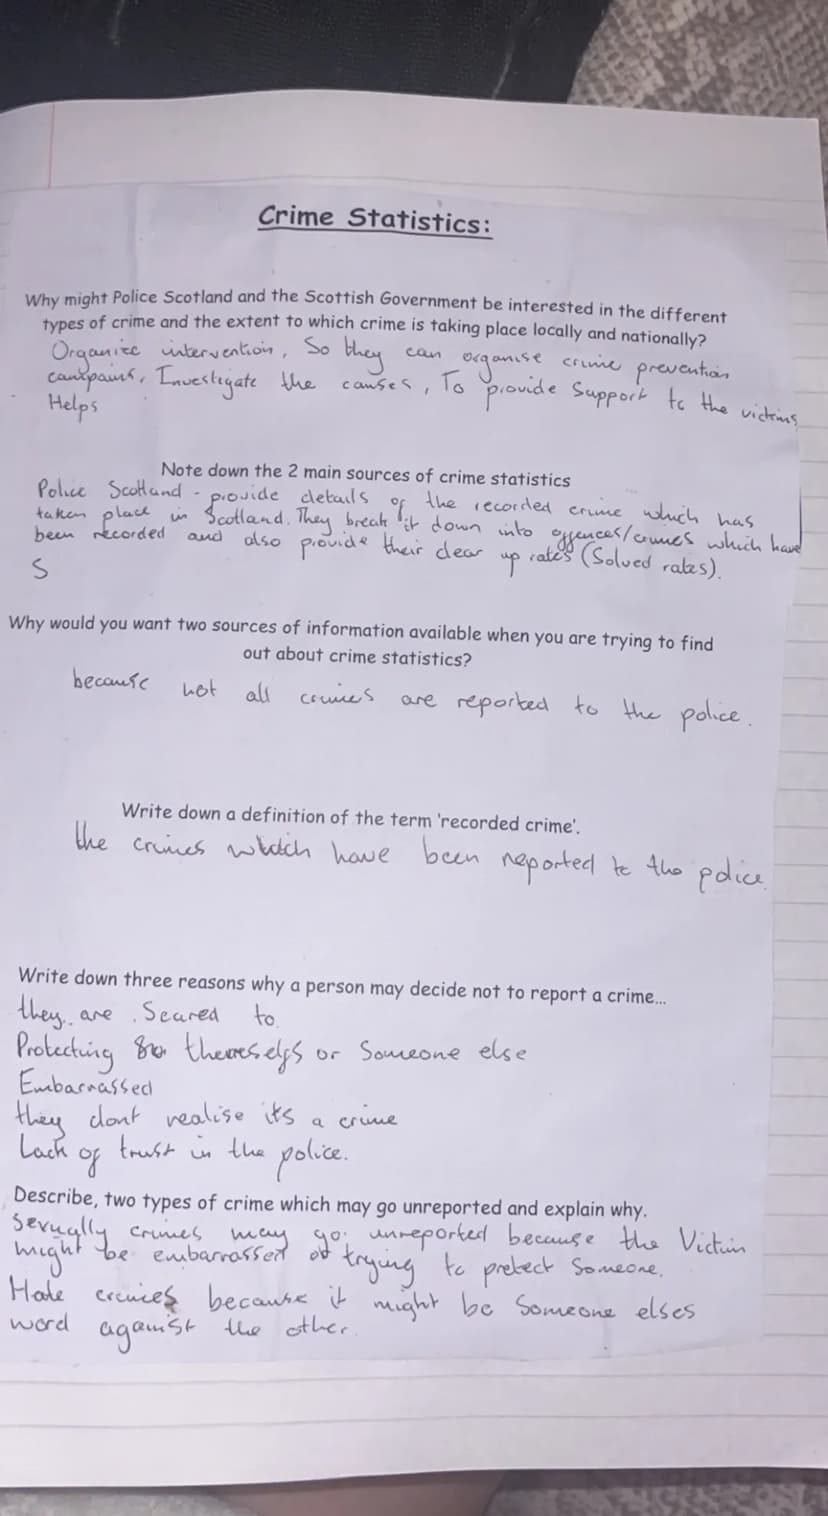 Crime Statistics:
Why might Police Scotland and the Scottish Government be interested in the different
types of crime and the extent to which crime is taking place locally and nationally?
Organize intervention, So they can organise crime prevention
campains, Investigate the causes, To provide Support to the victims
Helps
Note down the 2 main sources of crime statistics
Police Scotland - provide details of the recorded crime which has
taken place in Scotland. They break it down into offences/crimes which have
been recorded and also provide their clear up rates (Solved rates).
S
Why would you want two sources of information available when you are trying to find
out about crime statistics?
because not all crimes are reported to the police.
Write down a definition of the term 'recorded crime'.
the crimes which have been reported to the police.
Write down three reasons why a person may decide not to report a crime...
they are Scared to.
Protecting themselfs or Someone else
Embarrassed
they dont realise its a crime
Lack of trust in the police.
Describe, two types of crime which may go unreported and explain why.
Sexually crimes may go unreported because the Victim
might be embarrassed or trying to protect Someone.
Hate crimes because it might be Someone elses
word against the other.